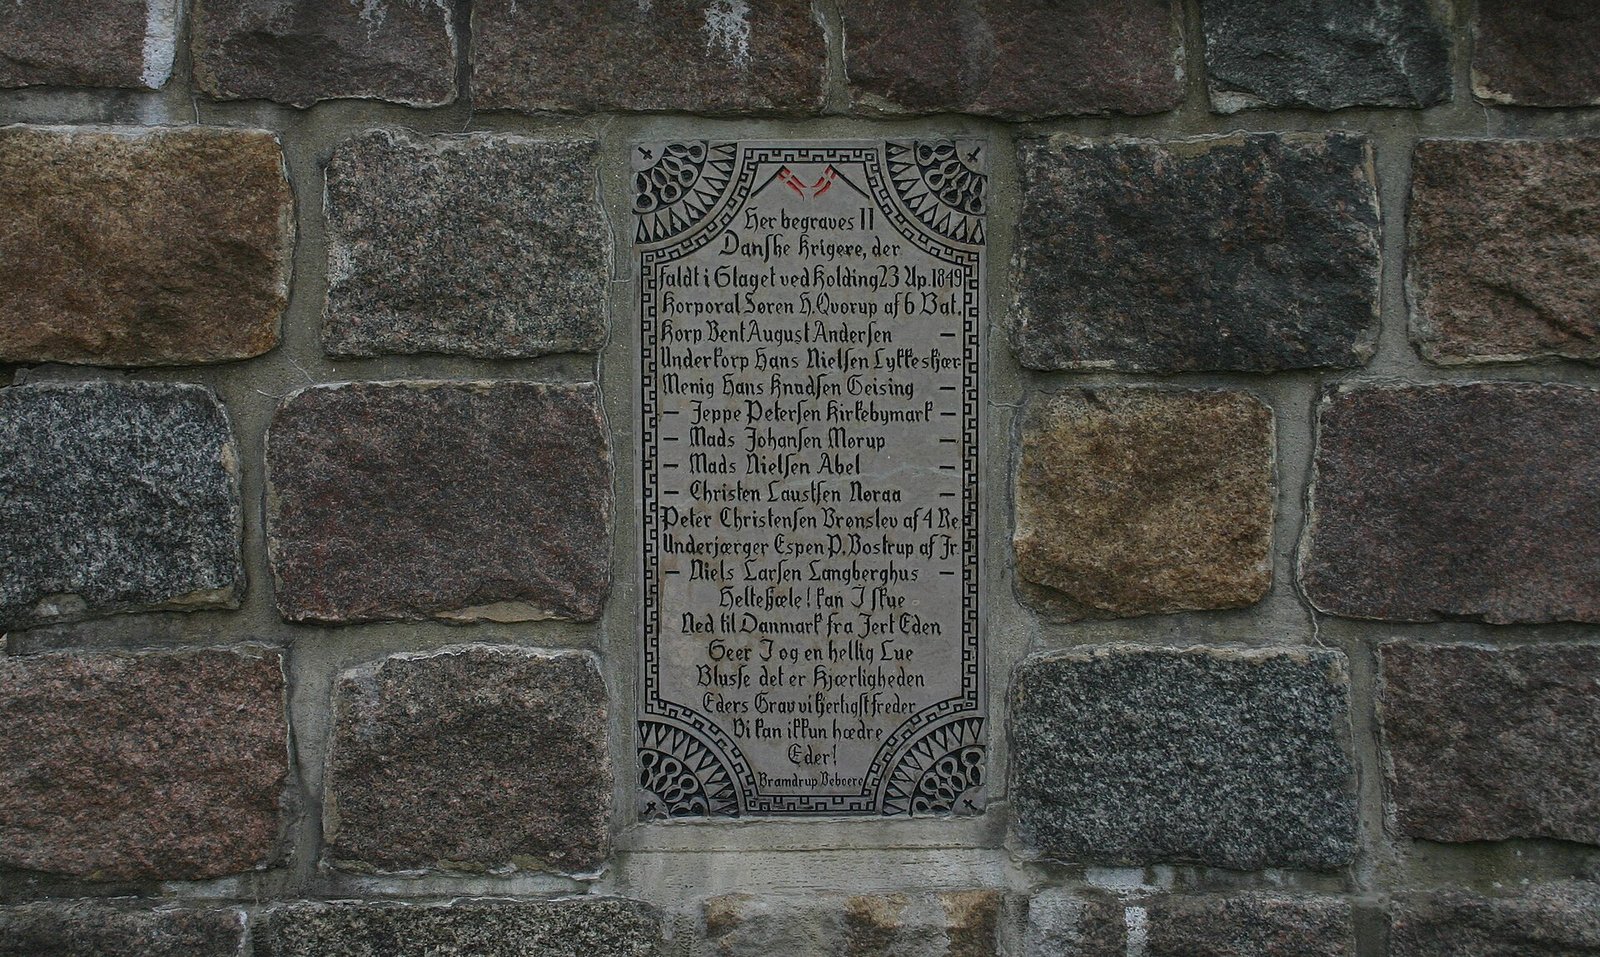 Her begraves 11
Danske Krigere, der
faldt i Slaget ved Kolding 23 Ap. 1849
Korporal Søren H. Qvorup af 6 Bat.
Korp Bent August Andersen —
Underkorp Hans Nielsen Lykkeskjær
Menig Hans Knudsen Geising —
— Jeppe Petersen Kirkebymark —
— Mads Johansen Mørup —
— Mads Nielsen Abel —
— Christen Laustsen Nøraa —
Peter Christensen Brønslev af 4 Re
Underjærger Espen P. Bostrup af Jr
— Niels Larsen Langberghus —
Heltesjæle! kan I skue
Ned til Danmark fra Jert Eden
Seer I og en hellig Lue
Blusse det er Kjærligheden
Eders Grav vi kjerligst freder
Vi kan ikkun hædre
Eder!
Bramdrup Beboere